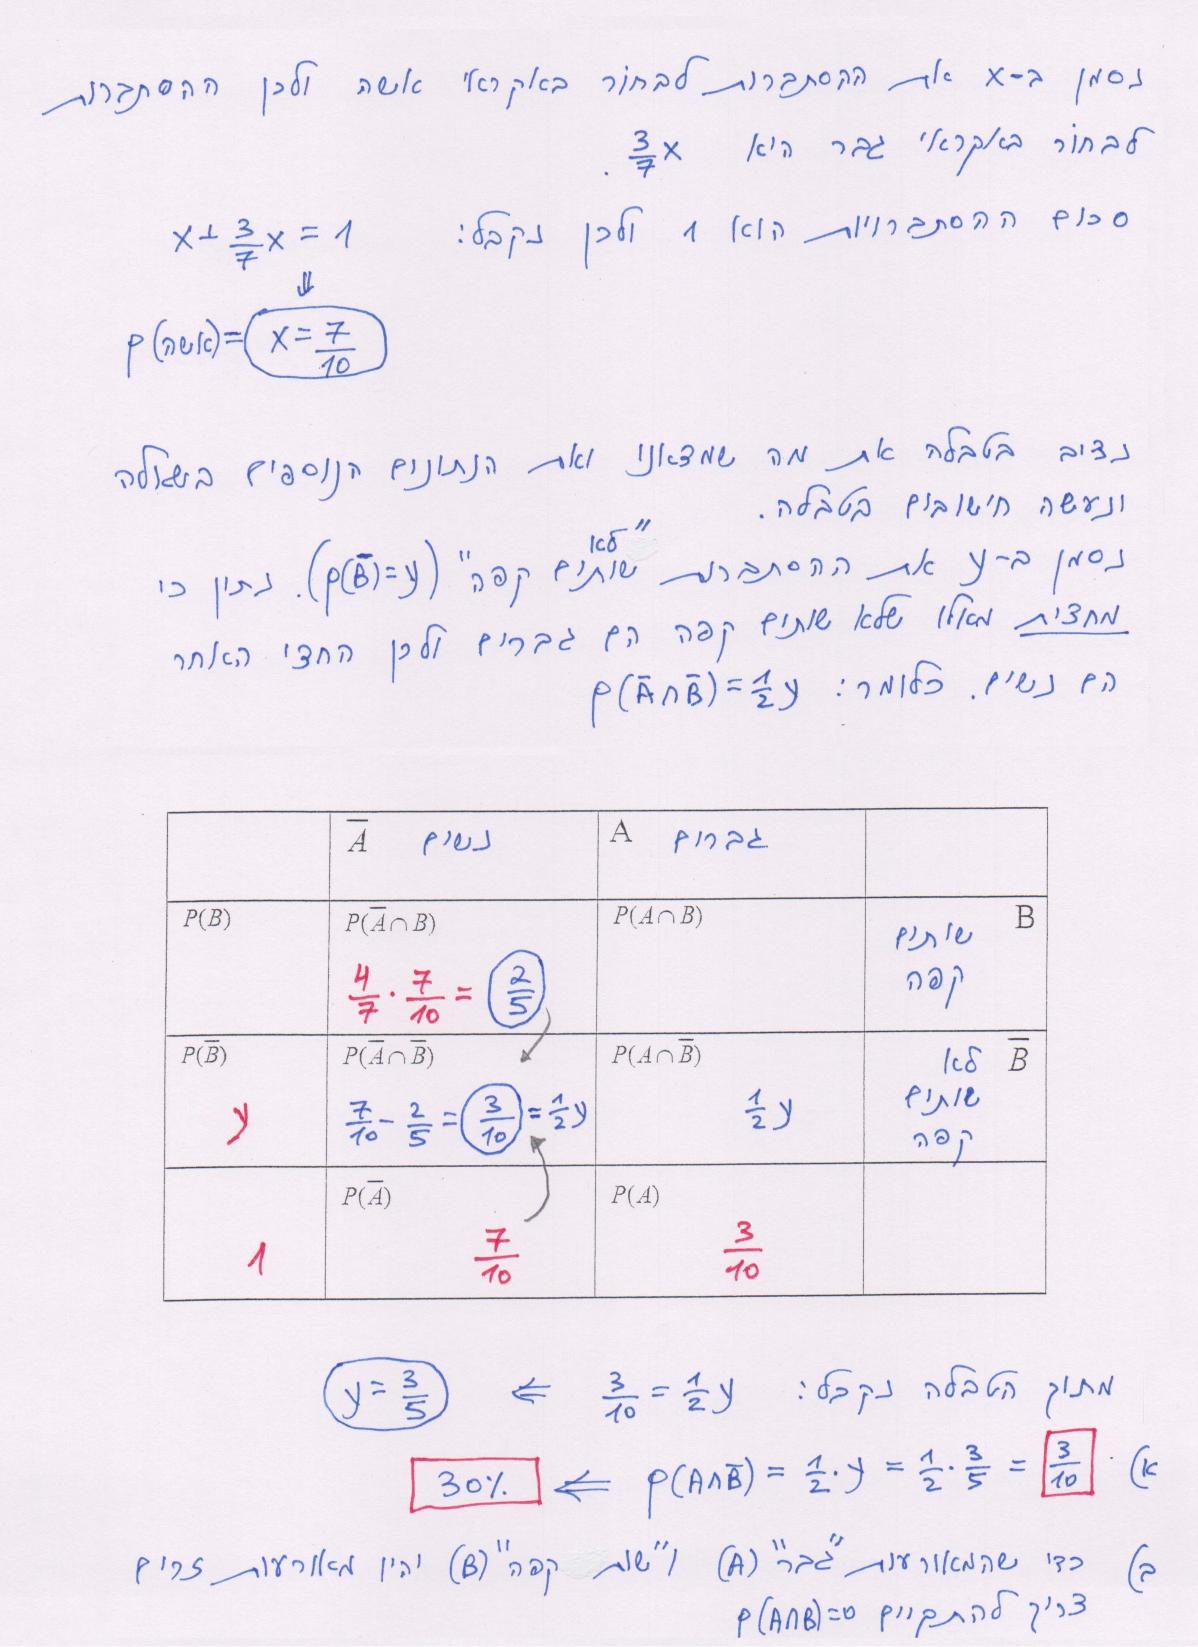 נסמן ב-x את ההסתברות לבחור באקראי אשה ולכן ההסתברות
לבחור באקראי גבר היא 3/7 x.
סכום ההסתברויות הוא 1 ולכן נקבל: x + 3/7 x = 1
⇓
p(אשה) = x = 7/10
נציב בטבלה את מה שמצאנו ואת הנתונים הנוספים בשאלה
ונעשה חישובים בטבלה.
נסמן ב-y את ההסתברות "לא שותים קפה" (p(B̅)=y). נתון כי
מחצית מאלו שלא שותים קפה הם גברים ולכן החצי האחר
הם נשים. כלומר: p(A̅∩B̅) = 1/2 y
A גברים
A̅ נשים
B שותים קפה
P(A∩B)
P(A̅∩B) 4/7 · 7/10 = 2/5
P(B)
B̅ לא שותים קפה
P(A∩B̅) 1/2 y
P(A̅∩B̅) 7/10 - 2/5 = 3/10 = 1/2 y
P(B̅) y
P(A) 3/10
P(A̅) 7/10
1
מתוך הטבלה נקבל: 3/10 = 1/2 y ⇐ y = 3/5
א) p(A∩B̅) = 1/2 · y = 1/2 · 3/5 = 3/10 ⇐ 30%
ב) כדי שהמאורעות "גבר" (A) ו"שותה קפה" (B) יהיו מאורעות זרים
צריך להתקיים p(A∩B)=0